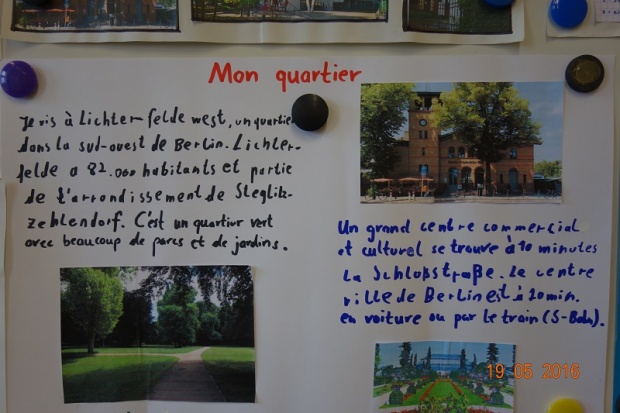 Mon quartier
Je vis à Lichterfelde west, un quartier
dans la sud-ouest de Berlin. Lichter-
felde a 82.000 habitants et partie
de l'arrondissement de Steglik-
Zehlendorf. C'est un quartier vert
avec beaucoup de parcs et de jardins.
Un grand centre commercial
et culturel se trouve à 10 minutes
la Schloßstraße. Le centre
ville de Berlin est à 20 min.
en voiture ou par le train (S-Bahn).
19 05 2016